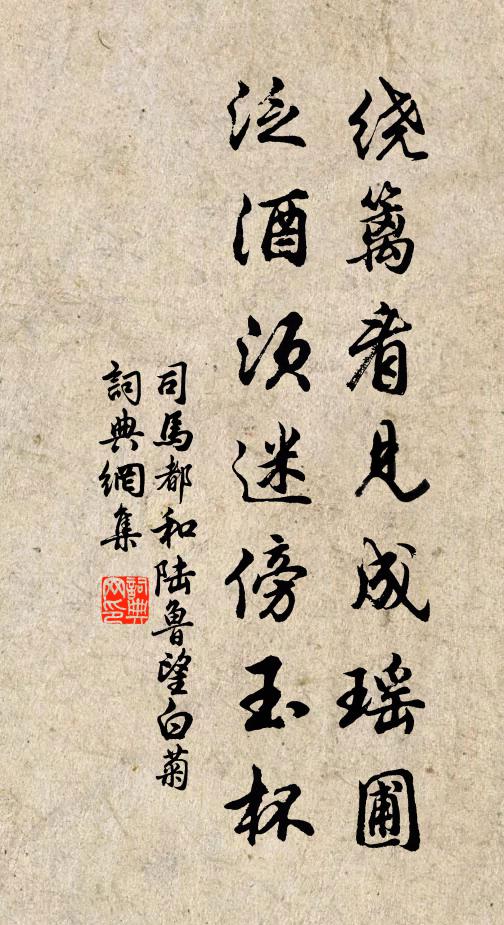 绕篱看见成瑶圃
泛酒须迷傍玉杯
司馬都和陆鲁望白菊
詞典網集
詞典网印